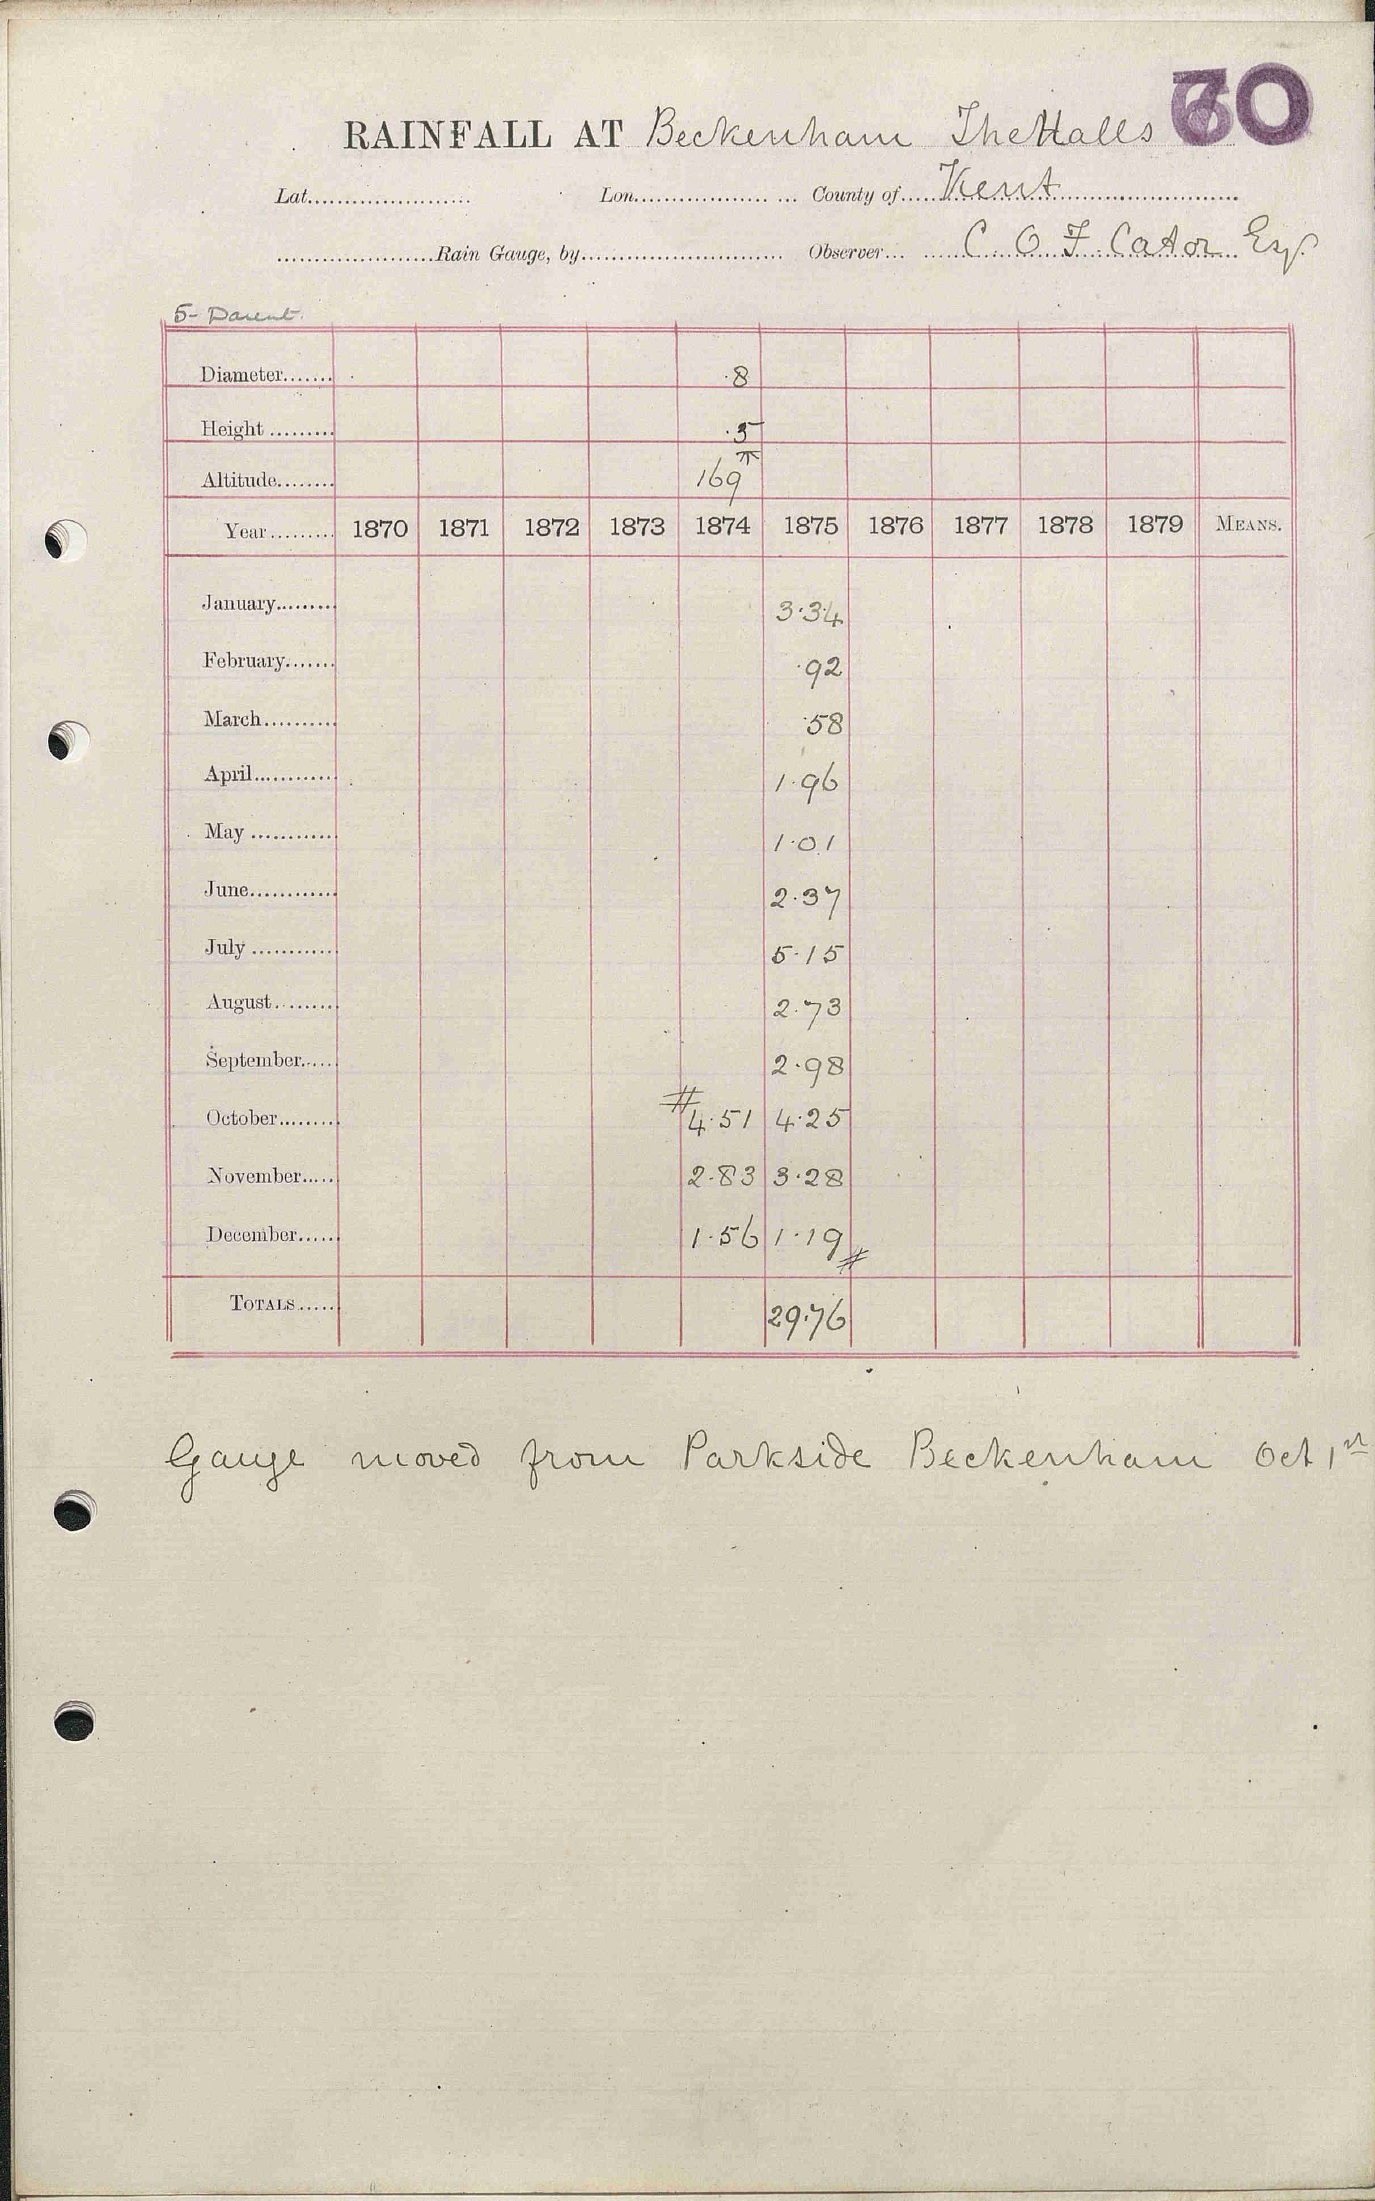 70
RAINFALL AT Beckenham The Halls
Lat. Lon. County of Kent
Rain Gauge, by Observer C. O. F. Cator Esq.
5- Darent.
Diameter 8
Height .5
Altitude 169
Year 1870 1871 1872 1873 1874 1875 1876 1877 1878 1879 MEANS.
January 3.34
February .92
March .58
April 1.96
May 1.01
June 2.37
July 5.15
August 2.73
September 2.98
October # 4.51 4.25
November 2.83 3.28
December 1.56 1.19 #
TOTALS 29.76
Gauge moved from Parkside Beckenham Oct 1st